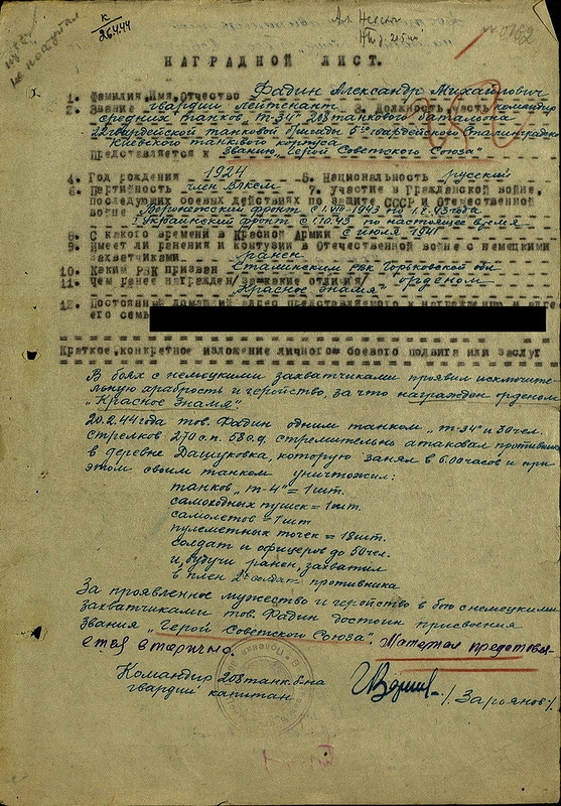 к
26.4.44
НАГРАДНОЙ ЛИСТ.
1. Фамилия, Имя, Отчество Фадин Александр Михайлович
2. Звание гвардии лейтенант 3. Должность, часть командир
средних танков "Т-34" 208 танкового батальона
22 гвардейской танковой бригады 5го гвардейского Сталинградско
Киевского танкового корпуса
Представляется к званию "Герой Советского Союза"
4. Год рождения 1924 5. Национальность русский
6. Партийность член ВЛКСМ 7. участие в Гражданской войне,
последующих боевых действиях по защите СССР и Отечественной
войне Воронежский фронт с 1943 по 1943 года
1 Украинский фронт с 1.10.43 по настоящее время
8. С какого времени в Красной Армии с июля 1941
9. Имеет ли ранения и контузии в Отечественной войне с немецкими
захватчиками. ранен
10. Каким РВК призван Сталинским РВК Горьковской обл
11. чем ранее награжден/за какие отличия/ орденом
"Красное знамя"
12. Постоянный домашний адрес представляемого к награждению и адрес
его семьи
Краткое, конкретное изложение личного боевого подвига или заслуг
В боях с немецкими захватчиками проявил исключите-
льную храбрость и геройство, за что награжден орденом
"Красное Знамя"
20.2.44 года тов. Фадин одним танком "Т-34" и 30 чел.
стрелков 270 с.п. 58 с.д. стремительно атаковал противника
в деревне Дашуковка, которую занял в 6.00 часов и при
этом своим танком уничтожил:
танков "Т-4" = 1 шт.
самоходных пушек = 1 шт.
самолетов = 1 шт
пулеметных точек = 18 шт.
солдат и офицеров до 50 чел.
и, будучи ранен, захватил
в плен 2х солдат противника
За проявленное мужество и геройство в бою с немецкими
захватчиками тов. Фадин достоин присвоения
звания "Герой Советского Союза". Материал представля-
ется вторично.
Командир 208 танк. б-на
гвардии капитан /Зарьянов/.